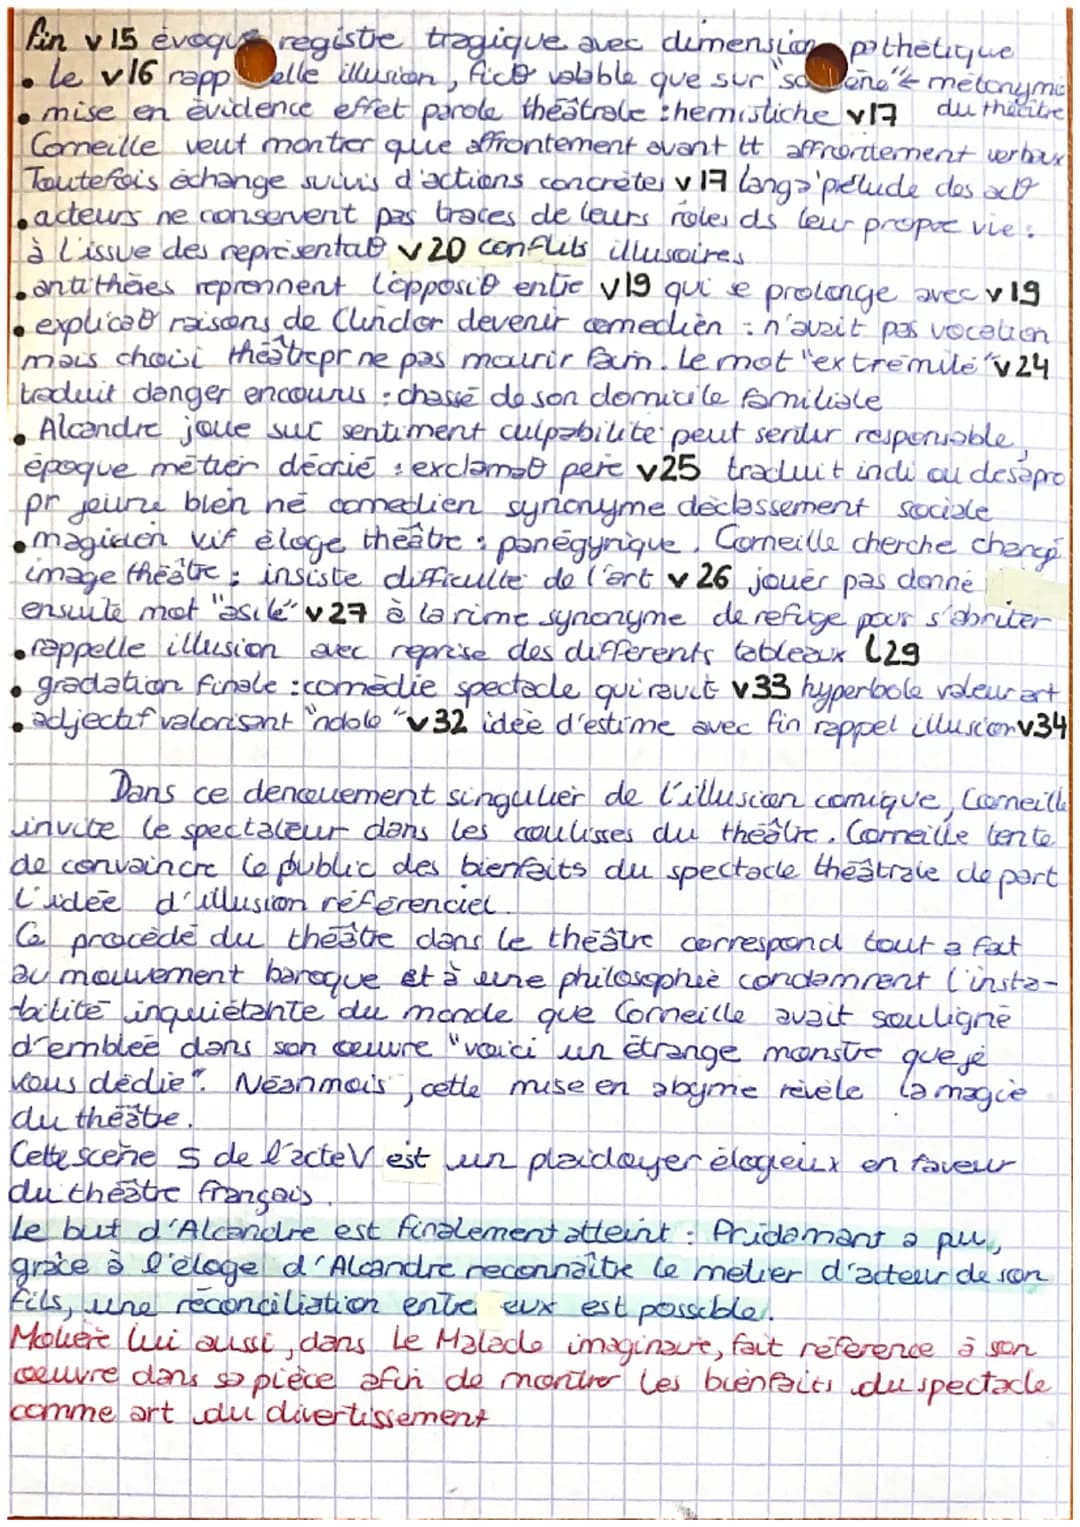 fin v15 évoque registre tragique avec dimension pathétique
• le v16 rappelle illusion, fict° valable que sur "scène" métonymie
• mise en évidence effet parole théâtrale : hemistiche v17 du théâtre
Corneille veut montrer que affrontement avant tt affrontement verbaux
Toutefois échange suivis d'actions concrètes v17 lang prélude des act°
• acteurs ne conservent pas traces de leurs rôles ds leur propre vie :
à l'issue des représentat° v20 conflits illusoires
• antithèses reprennent l'opposit° entre v19 qui se prolonge avec v19
• explicat° raisons de Clindor devenir comedien : n'avait pas vocation
mais choisi théâtre pr ne pas mourir faim. Le mot "extrémité" v24
traduit danger encourus : chassé de son domicile familiale
• Alcandre joue sur sentiment culpabilité peut sentir responsable,
époque métier décrié : exclamat° père v25 traduit indi ou désapro
pr jeune bien né comedien synonyme déclassement sociale
• magicien vif éloge théâtre : panégyrique. Corneille cherche changé
image théâtre ; insiste difficulté de l'art v26 jouer pas donné
ensuite mot "asile" v27 à la rime synonyme de refuge pour s'abriter
• rappelle illusion avec reprise des différents tableaux l29
• gradation finale : comédie spectacle qui ravit v33 hyperbole valeur art
• adjectif valorisant "noble" v32 idée d'estime avec fin rappel illusion v34
Dans ce denouement singulier de l'illusion comique, Corneille
invite le spectateur dans les coulisses du théâtre. Corneille tente
de convaincre le public des bienfaits du spectacle théâtrale de part
l'idée d'illusion référenciel.
Ce procédé du théâtre dans le théâtre correspond tout a fait
au mouvement baroque et à une philosophie condamnent l'insta-
bilité inquiétante du monde que Corneille avait souligné
d'emblée dans son œuvre "voici un étrange monstre que je
vous dédie". Néanmois, cette mise en abyme révèle la magie
du théâtre.
Cette scène 5 de l'acte V est un plaidoyer élogieux en faveur
du théâtre français.
Le but d'Alcandre est finalement atteint : Pridamant a pu,
grâce à l'éloge d'Alcandre reconnaître le metier d'acteur de son
fils, une réconciliation entre eux est possible.
Molière lui aussi, dans Le Malade imaginaire, fait référence à son
oeuvre dans sa pièce afin de montrer les bienfaits du spectacle
comme art du divertissement